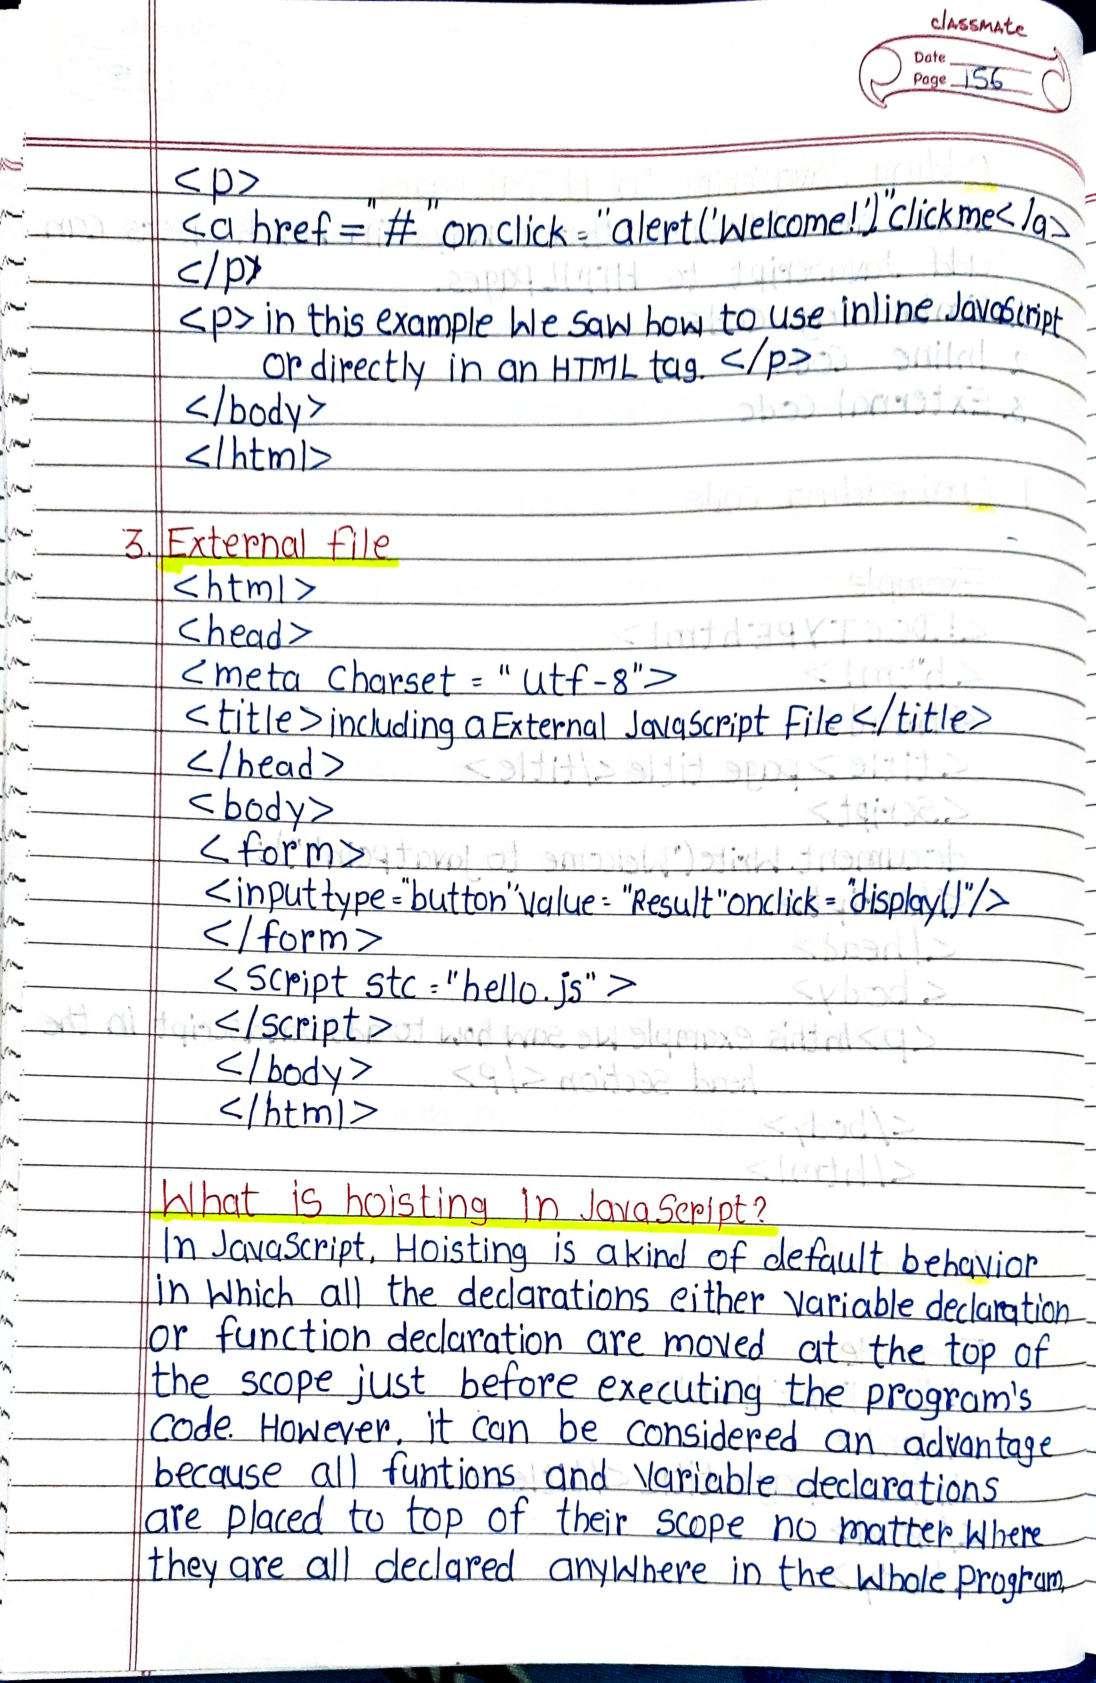 classmate
Date
Page 156
<p>
<a href = "#" onclick = "alert('Welcome!')" click me </a>
</p>
<p> in this example We saw how to use inline JavaScript
or directly in an HTML tag. </p>
</body>
</html>
3. External file
<html>
<head>
<meta charset = "utf-8">
<title> including a External JavaScript File </title>
</head>
<body>
<form>
<input type = "button" value = "Result" onclick = "display()"/>
</form>
<script stc = "hello.js" >
</script>
</body>
</html>
What is hoisting in JavaScript?
In JavaScript, Hoisting is a kind of default behavior
in Which all the declarations either variable declaration
or function declaration are moved at the top of
the scope just before executing the program's
code. However, it can be considered an advantage
because all funtions and variable declarations
are placed to top of their scope no matter Where
they are all declared anyWhere in the Whole program